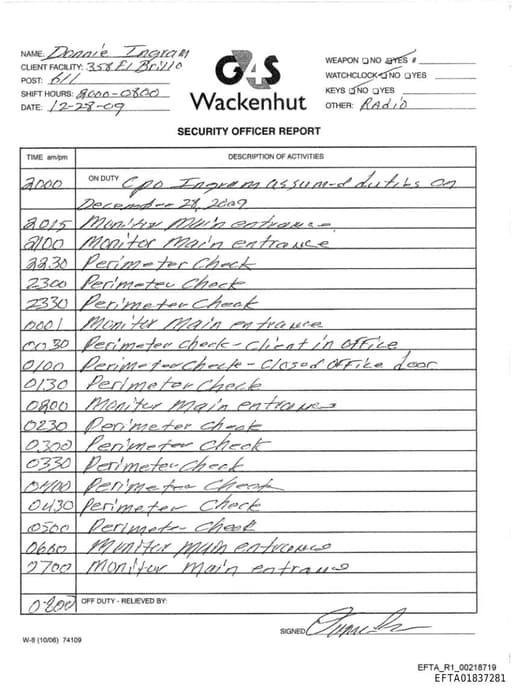 NAME: Donnie Ingram
CLIENT FACILITY: 358 El Brillo
POST: 611
SHIFT HOURS: 2000-0800
DATE: 12-28-09
G4S
Wackenhut
WEAPON □NO □YES #
WATCHCLOCK □NO □YES
KEYS □NO □YES
OTHER: RADIO
SECURITY OFFICER REPORT
TIME am/pm DESCRIPTION OF ACTIVITIES
2000 ON DUTY CPO Ingram assumed duties on
December 28, 2009
2015 Monitor Main entrance
2100 Monitor Main entrance
2230 Perimeter Check
2300 Perimeter Check
2330 Perimeter Check
0001 Monitor Main entrance
0030 Perimeter Check - Client in OFFice
0100 Perimeter Check - Closed OFFice door
0130 Perimeter Check
0200 Monitor Main entrance
0230 Perimeter Check
0300 Perimeter Check
0330 Perimeter Check
0400 Perimeter Check
0430 Perimeter Check
0500 Perimeter Check
0600 Monitor Main entrance
0700 Monitor Main entrance
0800 OFF DUTY - RELIEVED BY:
SIGNED
W-8 (10/06) 74109
EFTA_R1_00218719
EFTA01837281